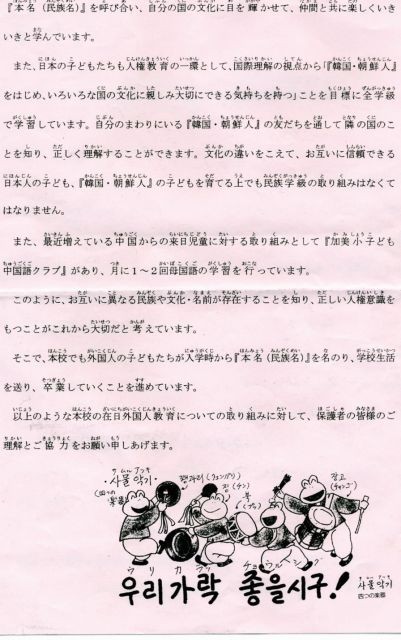 『本名（民族名）』を呼び合い、自分の国の文化に目を輝かせて、仲間と共に楽しくいき
いきと学んでいます。
また、日本の子どもたちも人権教育の一環として、国際理解の視点から「『韓国・朝鮮人』
をはじめ、いろいろな国の文化に親しみ大切にできる気持ちを持つ」ことを目標に全学級
で学習しています。自分のまわりにいる『韓国・朝鮮人』の友だちを通して隣の国のこ
とを知り、正しく理解することができます。文化の違いをこえて、お互いに信頼できる
日本人の子ども、『韓国・朝鮮人』の子どもを育てる上でも民族学級の取り組みはなくて
はなりません。
また、最近増えている中国からの来日児童に対する取り組みとして『加美小子ども
中国語クラブ』があり、月に１～２回母国語の学習を行なっています。
このように、お互いに異なる民族や文化・名前が存在することを知り、正しい人権意識を
もつことがこれから大切だと考えています。
そこで、本校でも外国人の子どもたちが入学時から『本名（民族名）』を名のり、学校生活
を送り、卒業していくことを進めています。
以上のような本校の在日外国人教育についての取り組みに対して、保護者の皆様のご
理解とご協力をお願い申しあげます。
サムルアッキ
사물악기
(四つの楽器)
꽹과리(クェンガリ)
징(チン)
북(プク)
장고(チャンゴ)
ウリカラク チョウルシグ
우리가락 좋을시구!
사물악기
四つの楽器